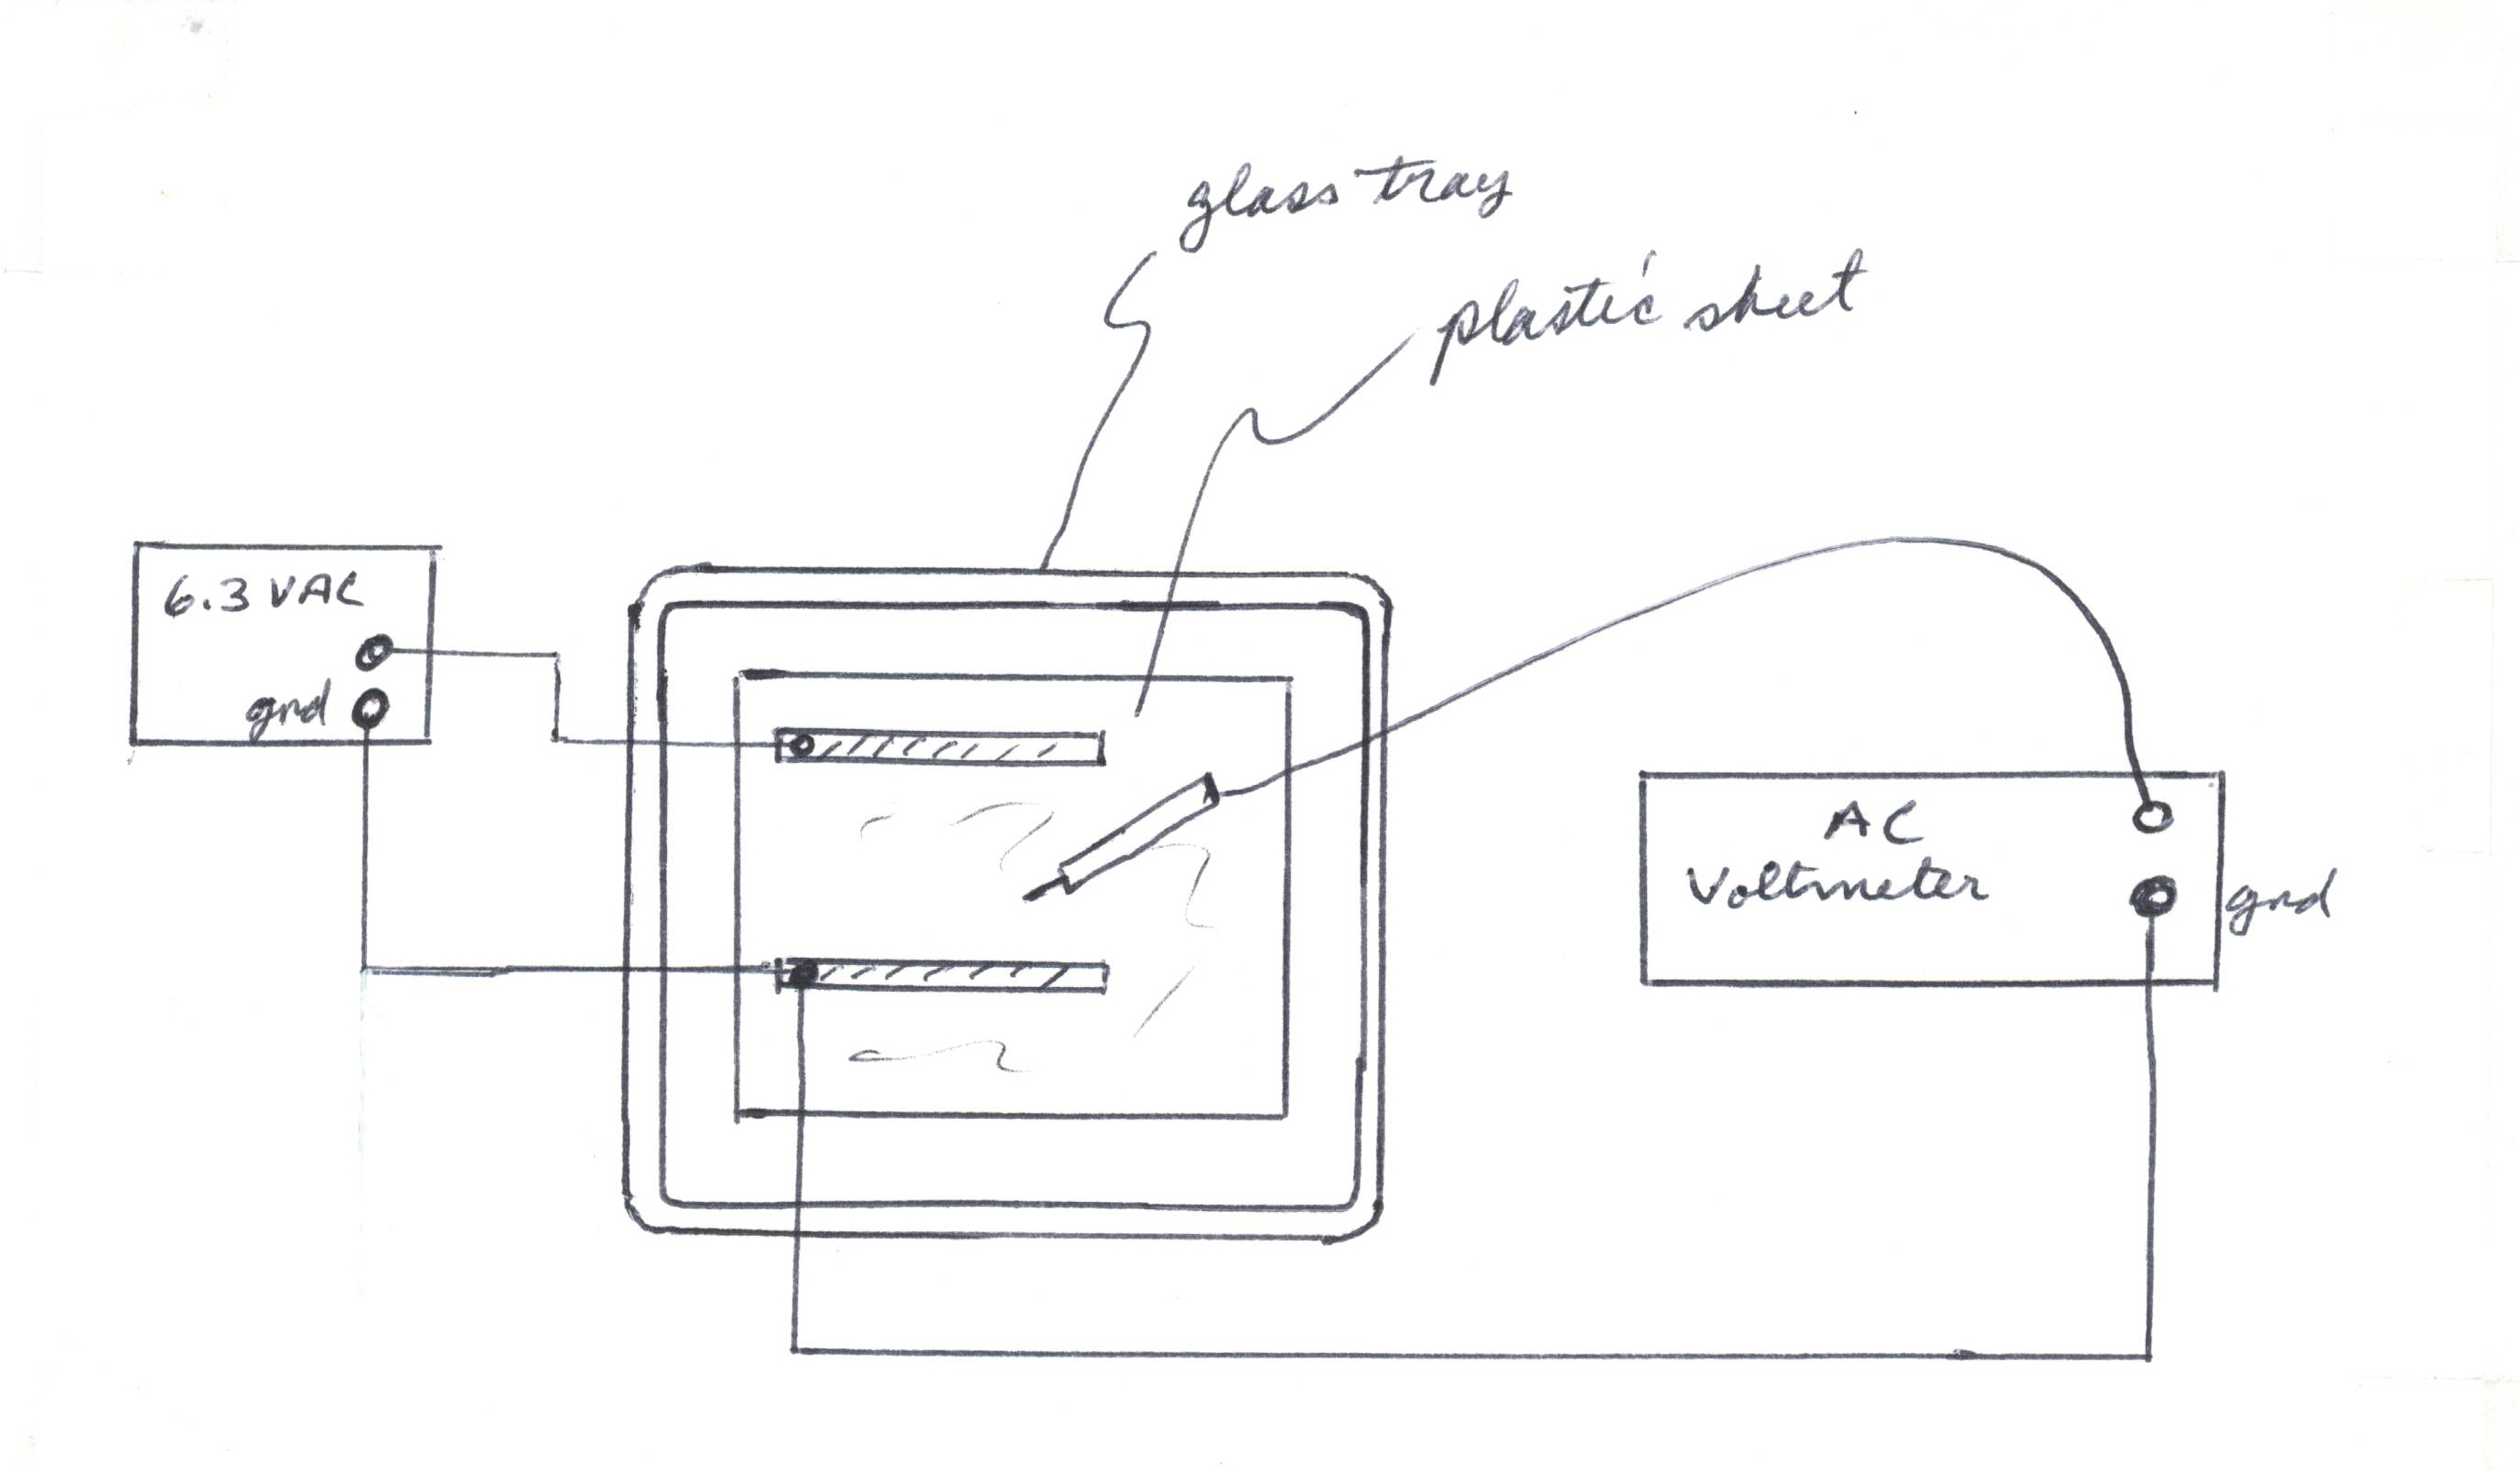 glass tray
plastic sheet
6.3 VAC
gnd
AC
Voltmeter
gnd